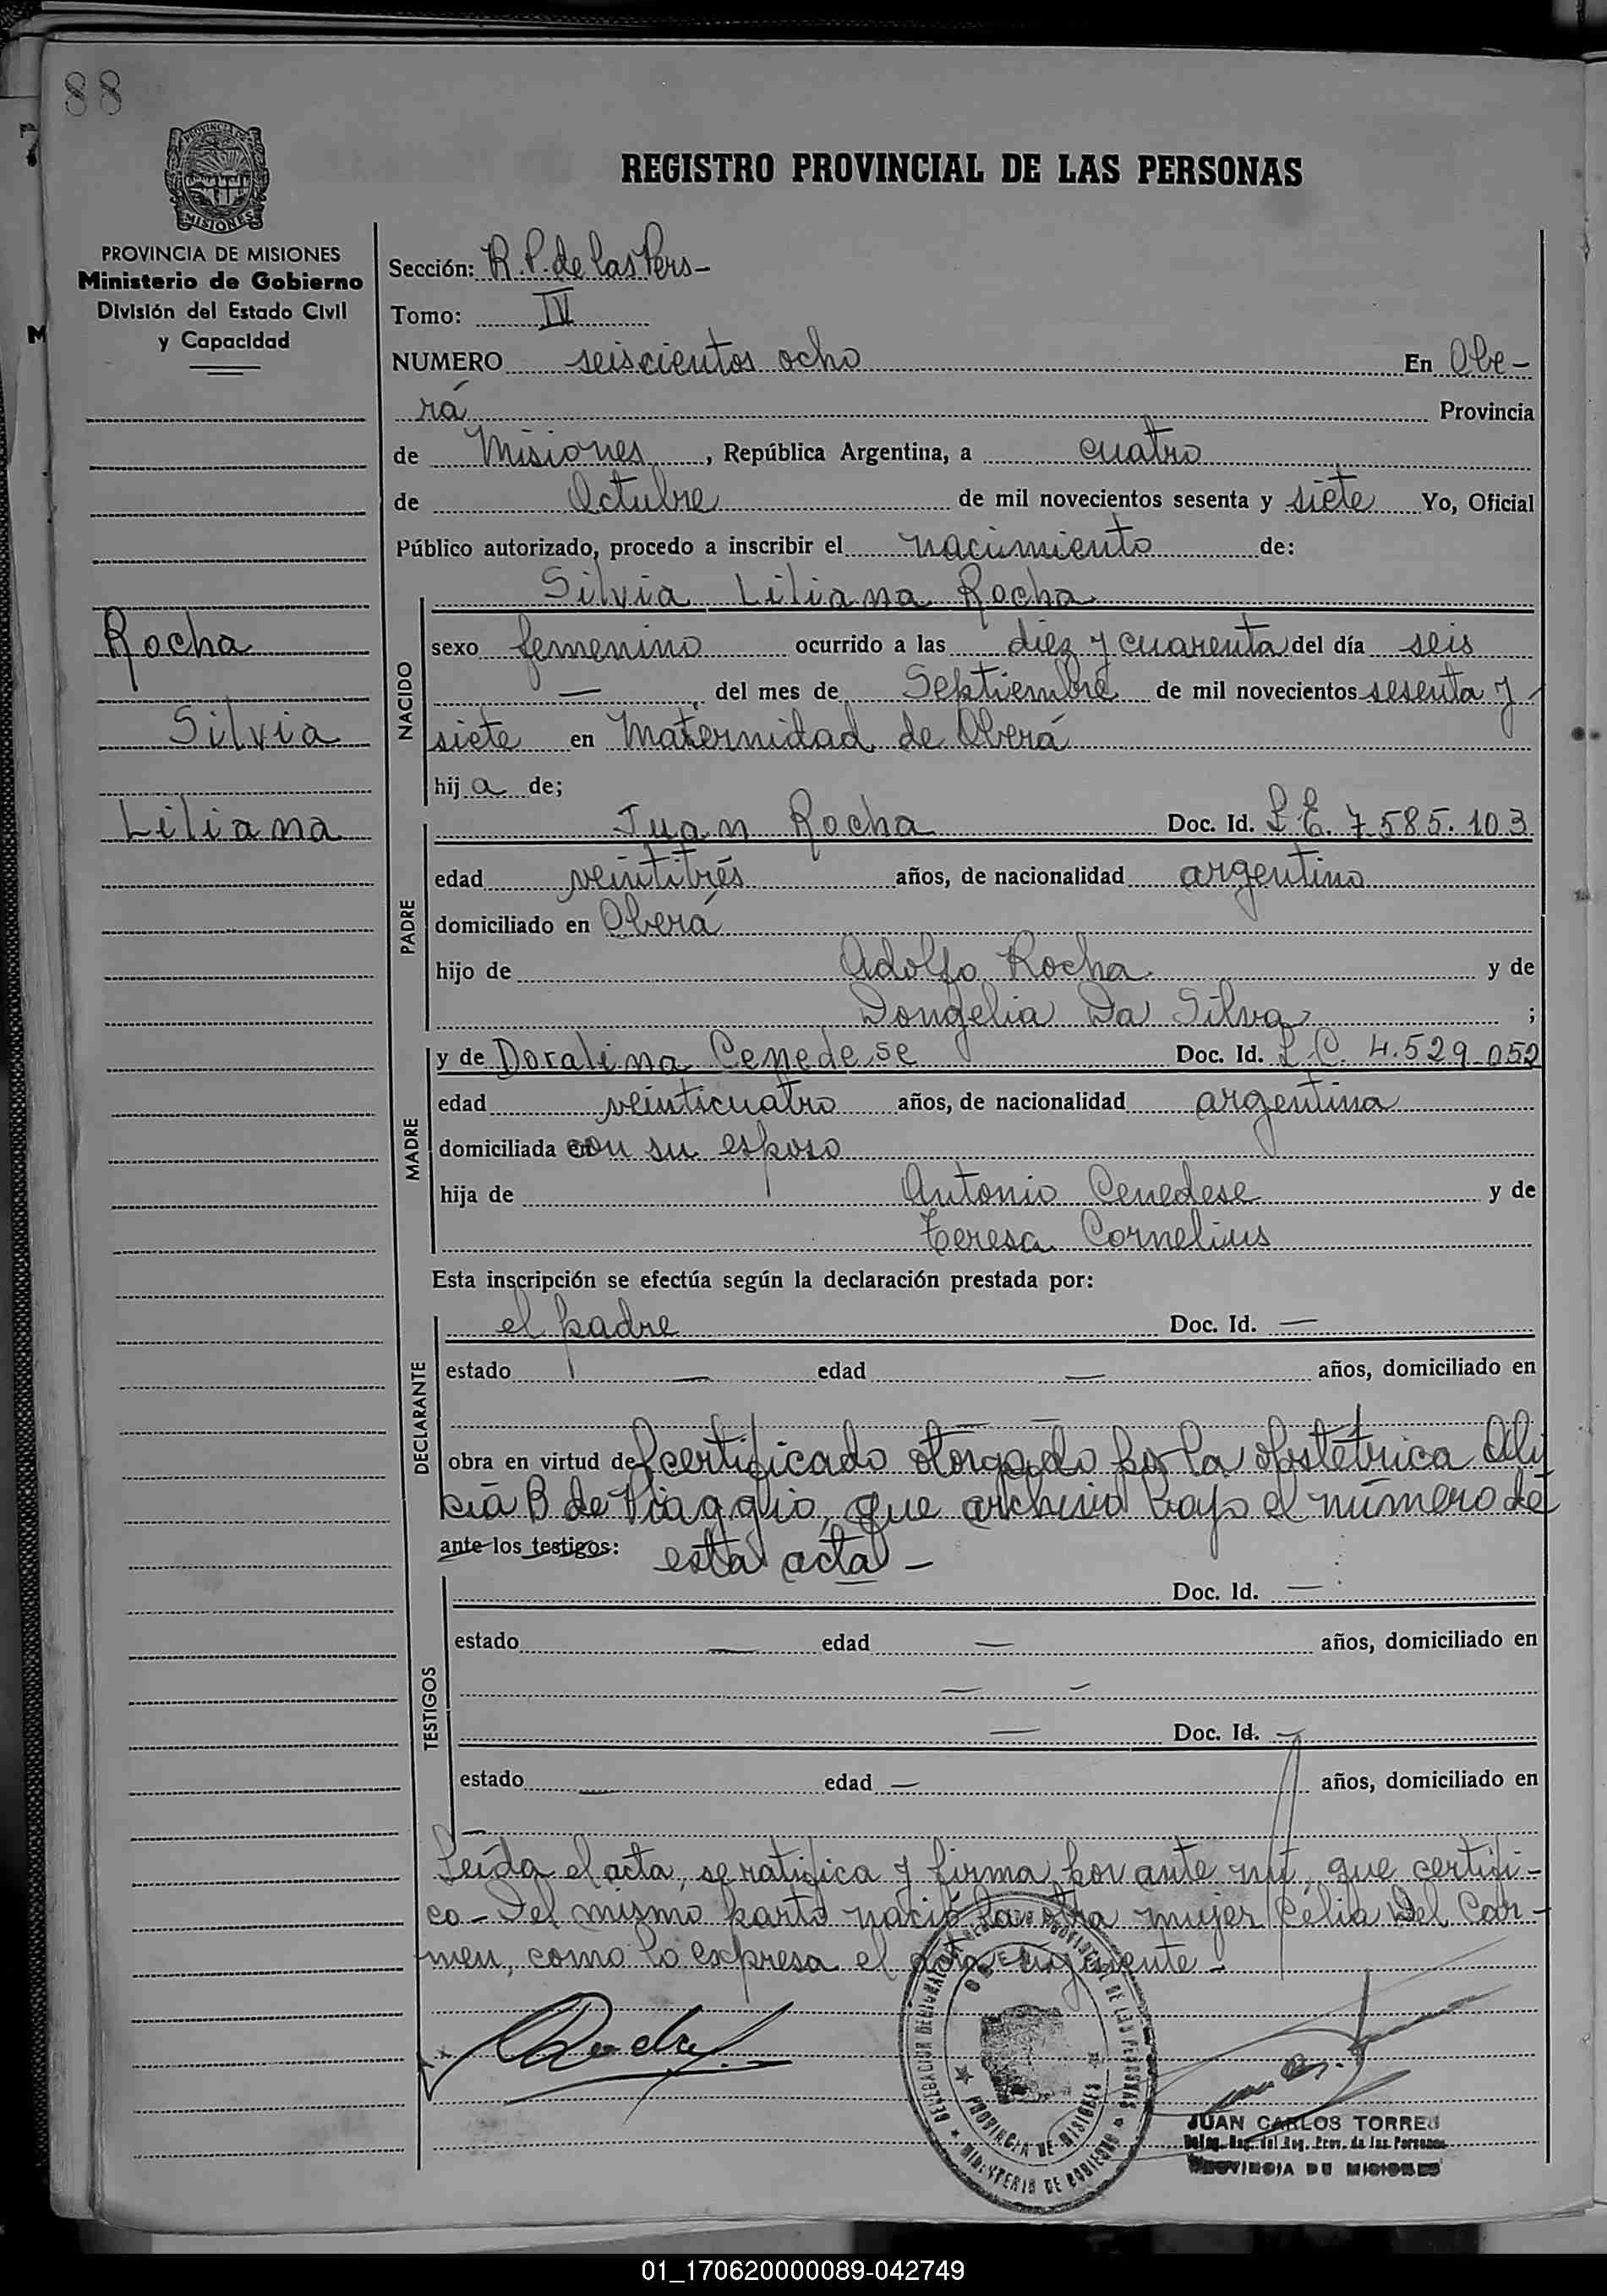 88
REGISTRO PROVINCIAL DE LAS PERSONAS
PROVINCIA DE
MISIONES
PROVINCIA DE MISIONES
Ministerio de Gobierno
División del Estado Civil
y Capacidad
Rocha
Silvia
Liliana
Sección: R. P. de las Pers-
Tomo: IV
NUMERO seiscientos ocho En Obe-
rá Provincia
de Misiones, República Argentina, a cuatro
de Octubre de mil novecientos sesenta y siete Yo, Oficial
Público autorizado, procedo a inscribir el nacimiento de:
NACIDO
Silvia Liliana Rocha
sexo femenino ocurrido a las diez y cuarenta del día seis
— del mes de Septiembre de mil novecientos sesenta y
siete en Maternidad de Oberá
hij a de;
PADRE
Juan Rocha Doc. Id. L.E. 7.585.103
edad veintitrés años, de nacionalidad argentino
domiciliado en Oberá
hijo de Adolfo Rocha y de
Dongelia Da Silva ;
MADRE
y de Doralina Cenedese Doc. Id. L.C. 4.529.052
edad veinticuatro años, de nacionalidad argentina
domiciliada con su esposo
hija de Antonio Cenedese y de
Teresa Cornelius
Esta inscripción se efectúa según la declaración prestada por:
DECLARANTE
el padre Doc. Id. —
estado — edad — años, domiciliado en
— —
obra en virtud del certificado otorgado por la obstétrica Ali
cia B de Viaggio, que archivo bajo el número de
ante los testigos: esta acta -
TESTIGOS
Doc. Id. —
estado — edad — años, domiciliado en
— —
— Doc. Id. —
estado — edad — años, domiciliado en
—
Leída el acta, se ratifica y firma por ante mí, que certifi-
co - Del mismo parto nació la otra mujer Celia Del Car-
men, como lo expresa el acta siguiente -
DELEGACION REGIONAL DEL REGISTRO PROVINCIAL DE LAS PERSONAS
OBERA
PROVINCIA DE MISIONES
MINISTERIO DE GOBIERNO
JUAN CARLOS TORRES
Deleg. Reg. del Reg. Prov. de las Personas
PROVINCIA DE MISIONES
01_170620000089-042749